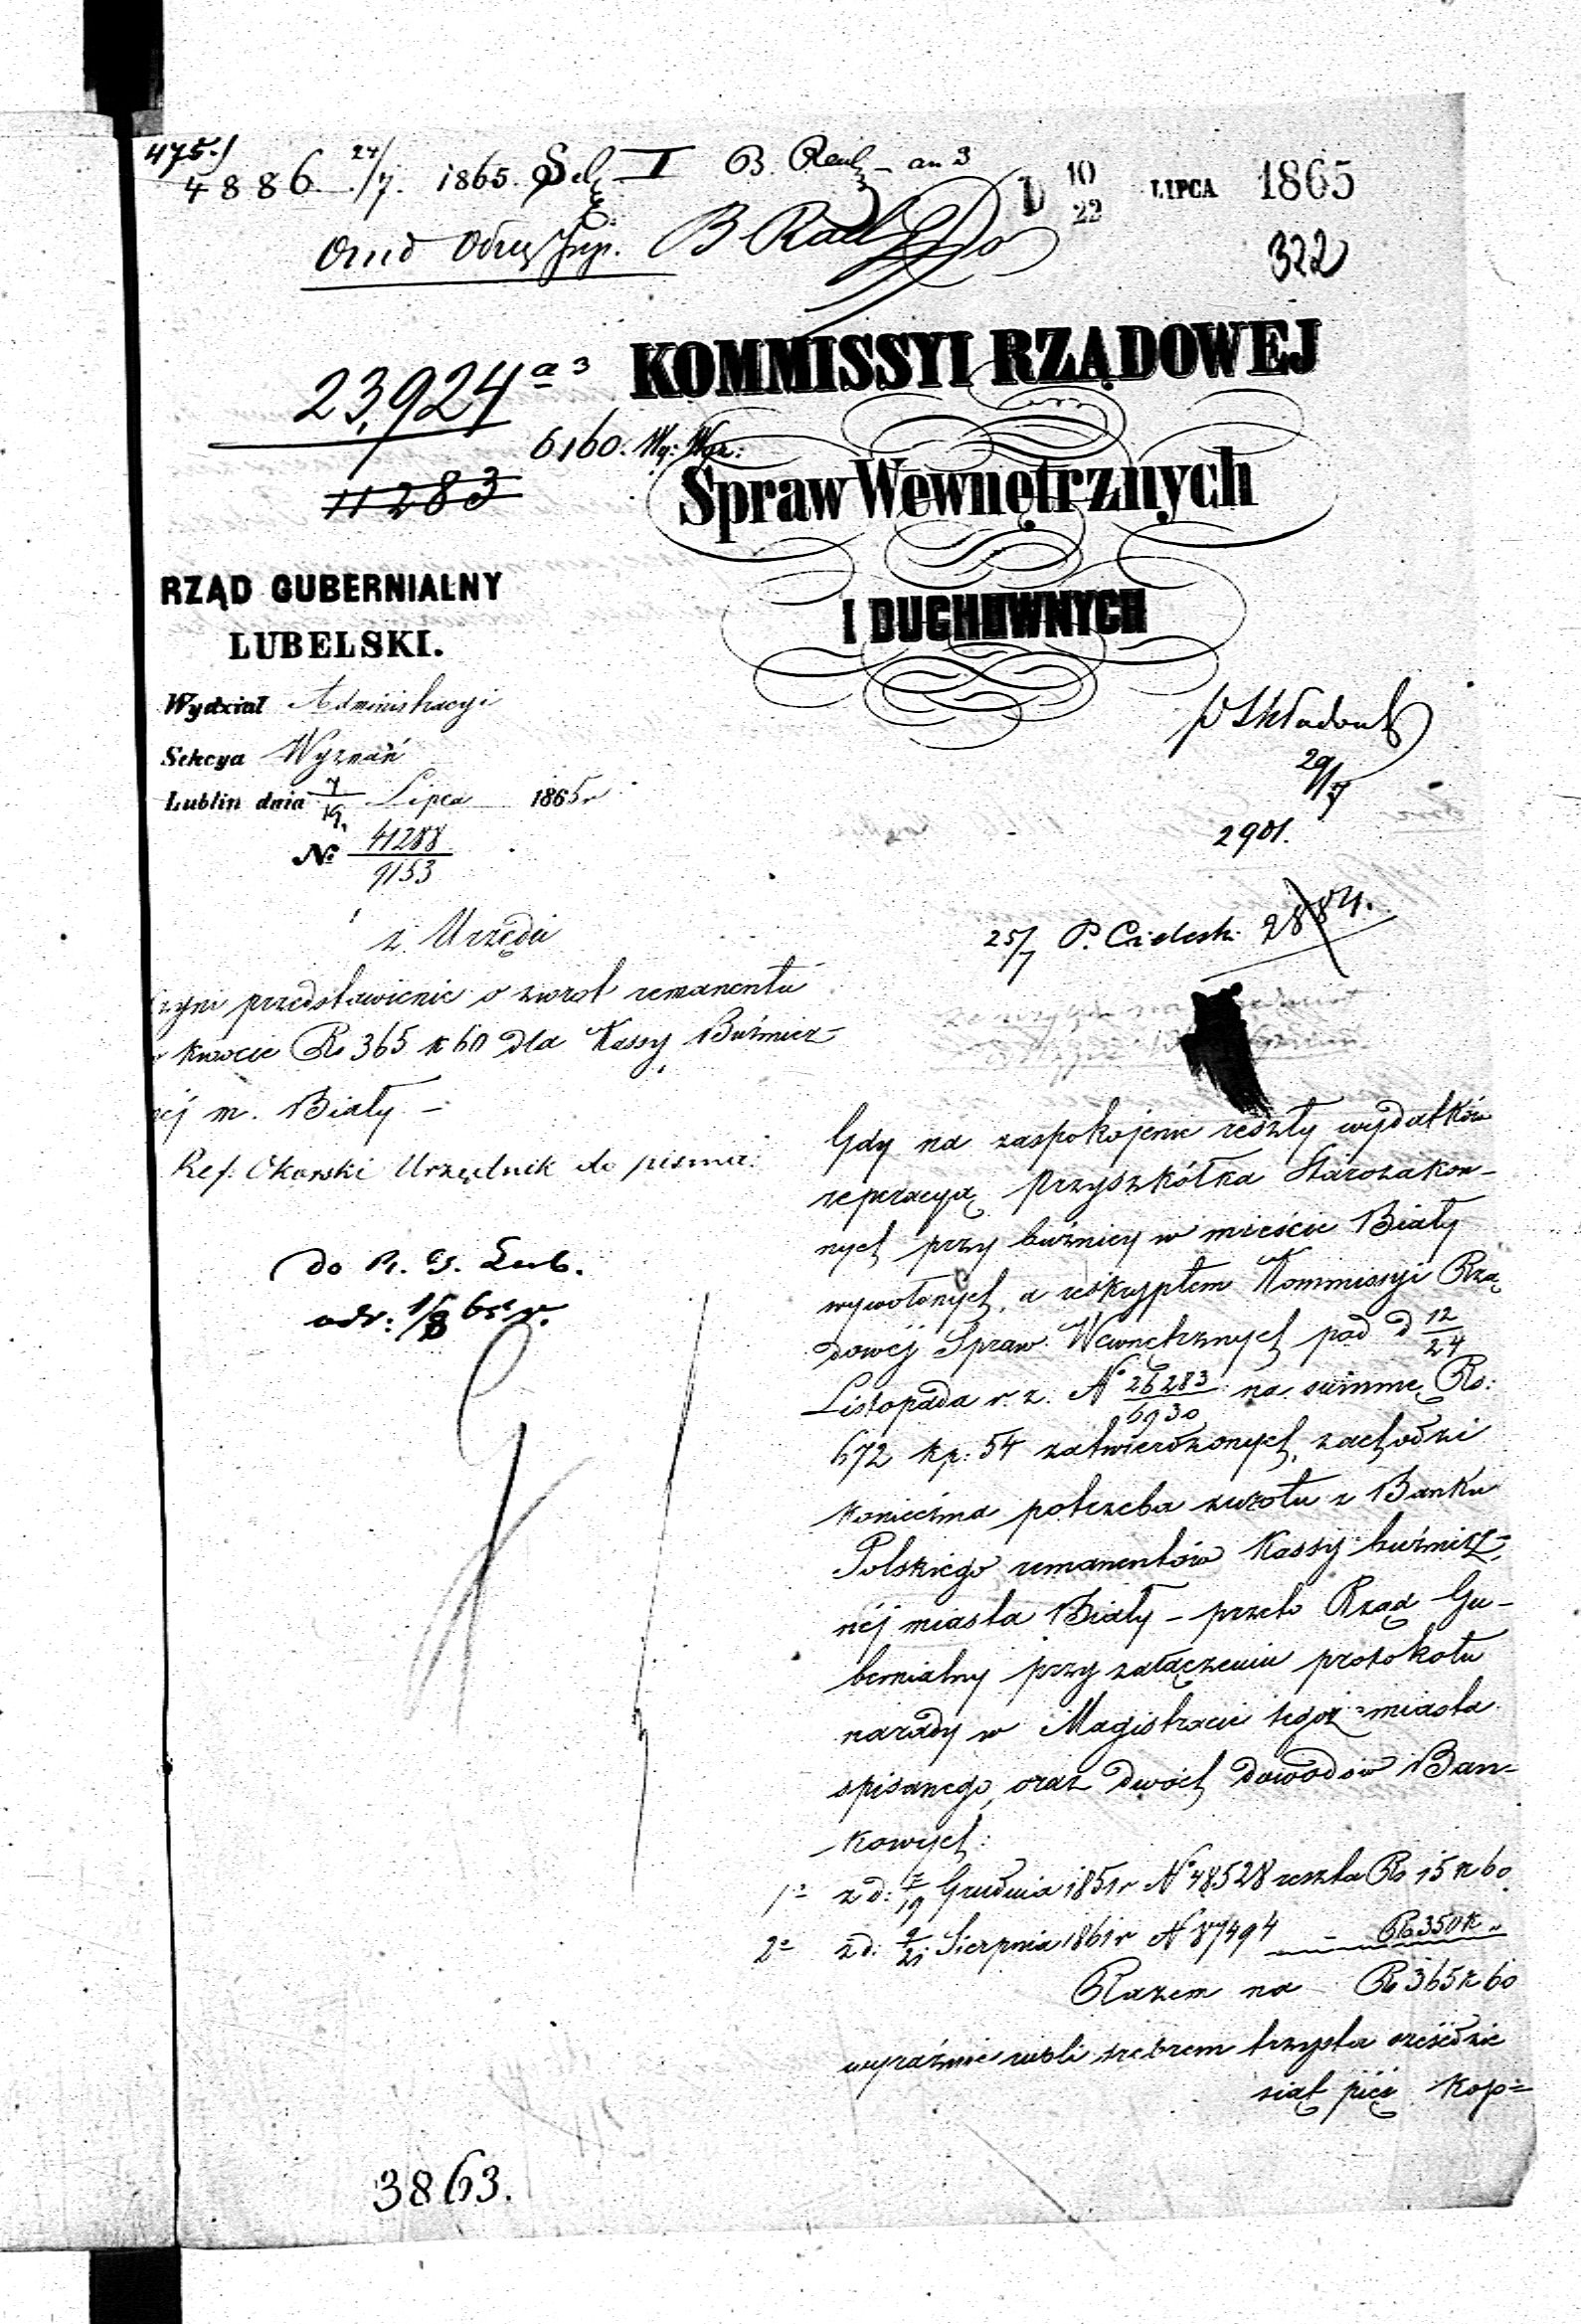 475.
4886 24/7. 1865. I B. an 3
D 10/22 LIPCA 1865
322
23,924 a 3
6160.
11283
KOMMISSYI RZĄDOWEJ
Spraw Wewnętrznych
I DUCHOWNYCH
RZĄD GUBERNIALNY
LUBELSKI.
Wydział Administracyi
Sekcya Wyznań
Lublin dnia 7/19 Lipca 1865 r
No 41288/9153
z Urzędu
przedstawienie o zwrot remanentu
kwocie Rs 365 k 60 dla Kassy Buźnicz-
m. Biały –
Ref. Okorski Urzędnik do pisma:
do R. G. Lub.
29/7
2901.
25/7 P. Cieleski 2884.
Gdy na zaspokojenie reszty wydatków
reperacyą przyszkółka Starozakon-
nych przy buźnicy w mieście Biały
wywołanych, a reskryptem Kommissyi Rzą
dowéj Spraw Wewnętrznych pod d 12/24
Listopada r. z. No 26283/6930 na summę Rs:
672 kp: 54 zatwierdzonych, zachodzi
konieczna potrzeba zwrotu z Banku
Polskiego remanentów Kassy buźnicz-
néj miasta Biały – przeto Rząd Gu-
bernialny przy załączeniu protokołu
narady w Magistracie tegoż miasta
spisanego, oraz dwóch dowodów Ban-
kowych:
1o z d: 7/19 Grudnia 1851 r No 48528 reszta Rs 15 k 60
2o z d: 9/21 Sierpnia 1861 r N 87494 – Rs 350 k „
Razem na Rs 365 k 60
wyraźnie rubli srebrem trzysta sześćdzie
siąt pięć kop=
3863.